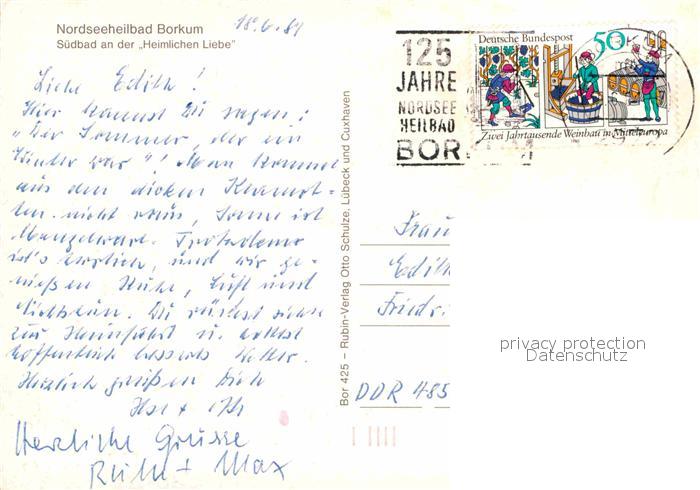 Nordseeheilbad Borkum
Südbad an der „Heimlichen Liebe"
18.6.81
125
JAHRE
NORDSEE
HEILBAD
BOR
Deutsche Bundespost
50
Zwei Jahrtausende Weinbau in Mitteleuropa
1980
Liebe Edith!
Hier kannst Du sagen:
"Der Sommer, der ein
Winter war"! Man kommt
aus den dicken Klamot-
ten nicht raus, Sonne ist
Mangelware. Trotzdem
ist's herrlich, und wir ge-
nießen Ruhe, Luft und
Nichtstun. Du rüstest
zur Heimfahrt u. hattest
hoffentlich besseres Wetter.
Herzlich grüßen Dich
Herzliche Grüsse
Ruth + Max
Bor 425 – Rubin-Verlag Otto Schulze, Lübeck und Cuxhaven
Frau
Edith
Friedr
DDR 485
privacy protection
Datenschutz